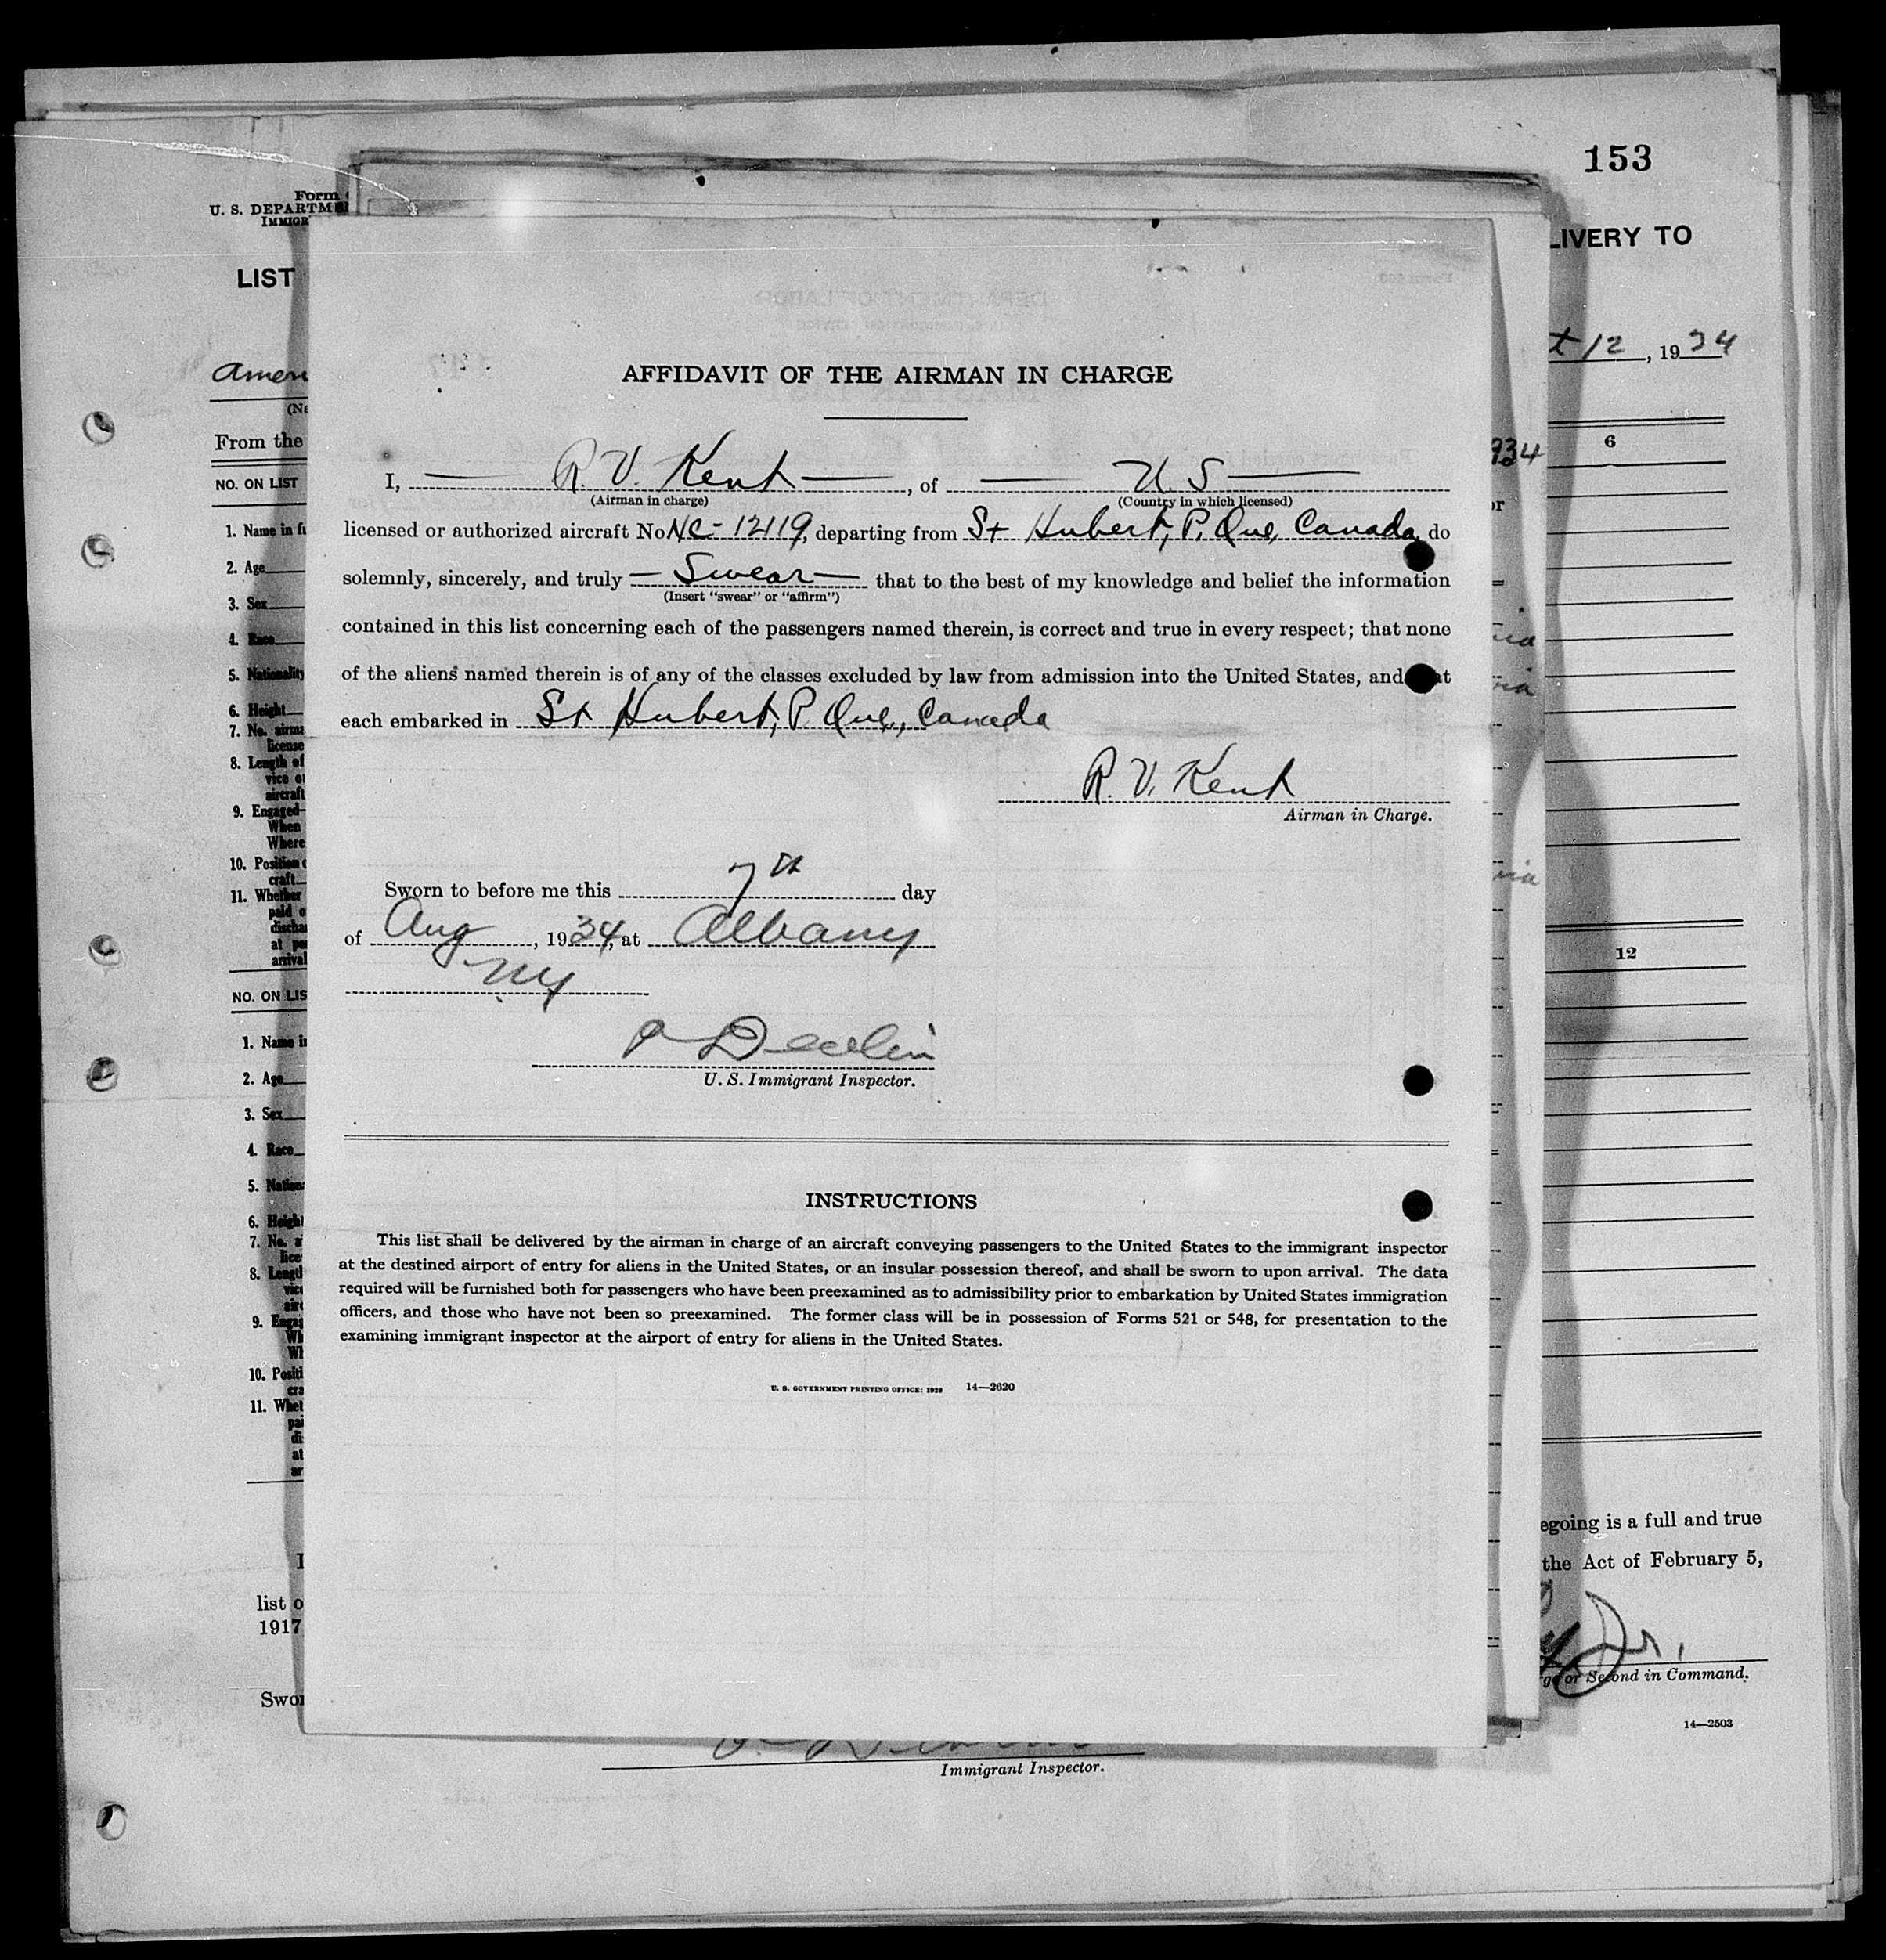 153
Form
U. S. DEPARTM
IMMIGR
LIVERY TO
LIST
t 12, 1934
Amer
From the
934
6
NO. ON LIST
1. Name in fu
2. Age
3. Sex
4. Race
5. Nationality
6. Height
7. No. airma
license
8. Length of
vice o
aircraft
9. Engaged—
When
Where
10. Position o
craft
11. Whether
paid o
dischar
at po
arrival
12
NO. ON LIS
1. Name i
2. Age
3. Sex
4. Race
5. Nation
6. Height
7. No. a
lice
8. Length
vice
airc
9. Engag
Wh
Wh
10. Positi
cra
11. Whet
pai
di
at
ar
AFFIDAVIT OF THE AIRMAN IN CHARGE
I, R. V. Kent, of U. S
(Airman in charge) (Country in which licensed)
licensed or authorized aircraft No. NC-12119, departing from St Hubert, P. Que, Canada, do
solemnly, sincerely, and truly — Swear — that to the best of my knowledge and belief the information
(Insert "swear" or "affirm")
contained in this list concerning each of the passengers named therein, is correct and true in every respect; that none
of the aliens named therein is of any of the classes excluded by law from admission into the United States, and t
each embarked in St Hubert, P. Que., Canada
R. V. Kent
Airman in Charge.
Sworn to before me this 7th day
of Aug, 1934, at Albany
NY
P Devlin
U. S. Immigrant Inspector.
INSTRUCTIONS
This list shall be delivered by the airman in charge of an aircraft conveying passengers to the United States to the immigrant inspector
at the destined airport of entry for aliens in the United States, or an insular possession thereof, and shall be sworn to upon arrival. The data
required will be furnished both for passengers who have been preexamined as to admissibility prior to embarkation by United States immigration
officers, and those who have not been so preexamined. The former class will be in possession of Forms 521 or 548, for presentation to the
examining immigrant inspector at the airport of entry for aliens in the United States.
U. S. GOVERNMENT PRINTING OFFICE: 1929 14—2620
egoing is a full and true
I
the Act of February 5,
list o
1917
Jr.
rge or Second in Command.
Swor
14—2503
Immigrant Inspector.